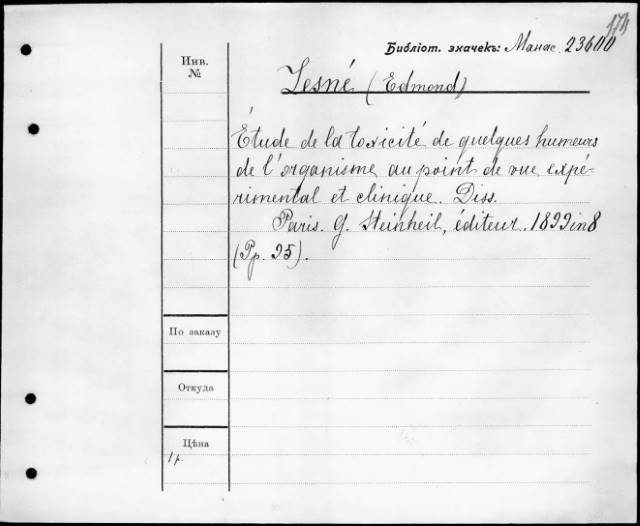 174
Библіот. значекъ: Манас. 23600
Инв.
№
Lesné (Edmond)
Étude de la toxicité de quelques humeurs
de l'organisme au point de vue expé-
rimental et clinique. Diss.
Paris. G. Steinheil, éditeur. 1899 in 8
(Pp. 95).
По заказу
Откуда
Цѣна
1 р.